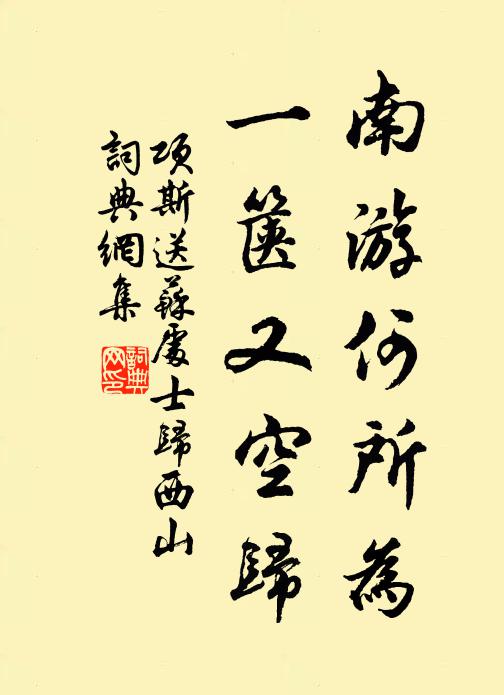 南游何所為
一篋又空歸
項斯送蘇處士歸西山
詞典網集
詞典網印